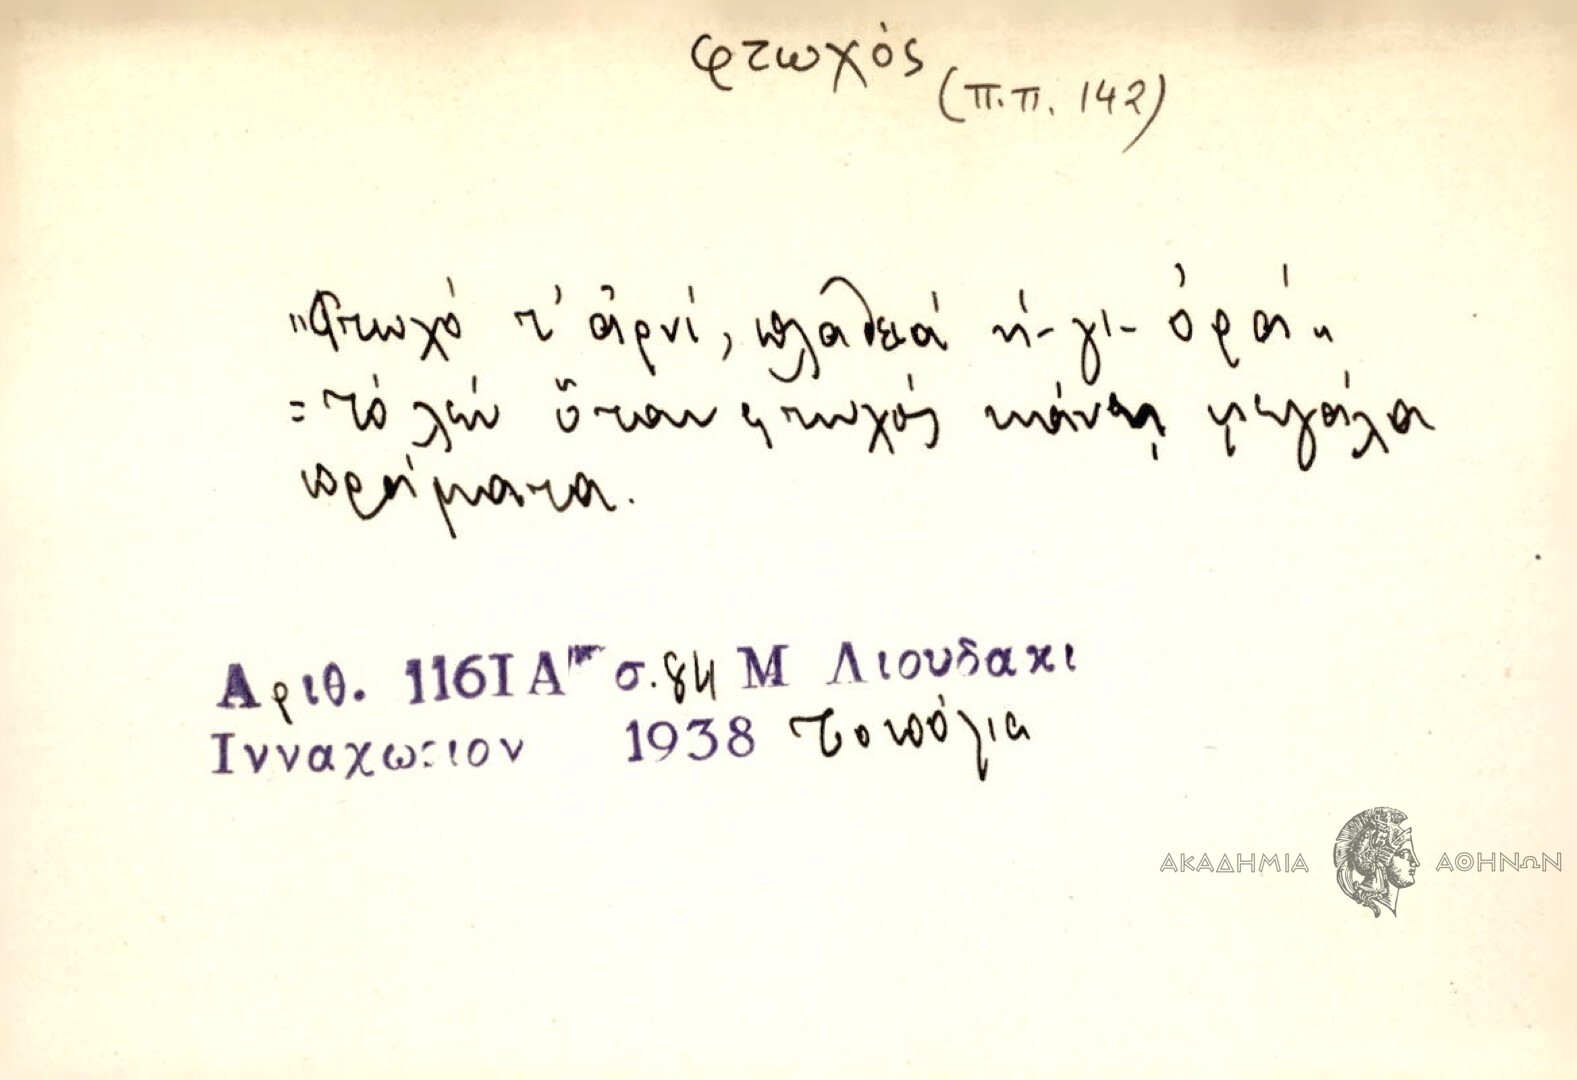 φτωχός
(π.π. 142)
"Φτωχό τ' ἀρνί, πλαθειά ἡ-γι-ὀρά"
= τό λέν ὅταν φτωχός κάνῃ μεγάλα
πράματα.
Αριθ. 1161 Α σ. 84 Μ Λιουδακι
Ινναχω:ιον 1938 Τοπόλια
ΑΚΑΔΗΜΙΑ ΑΘΗΝΩΝ